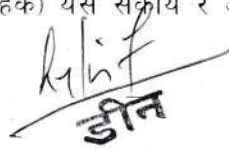 हक) यस संकाय र
डीन